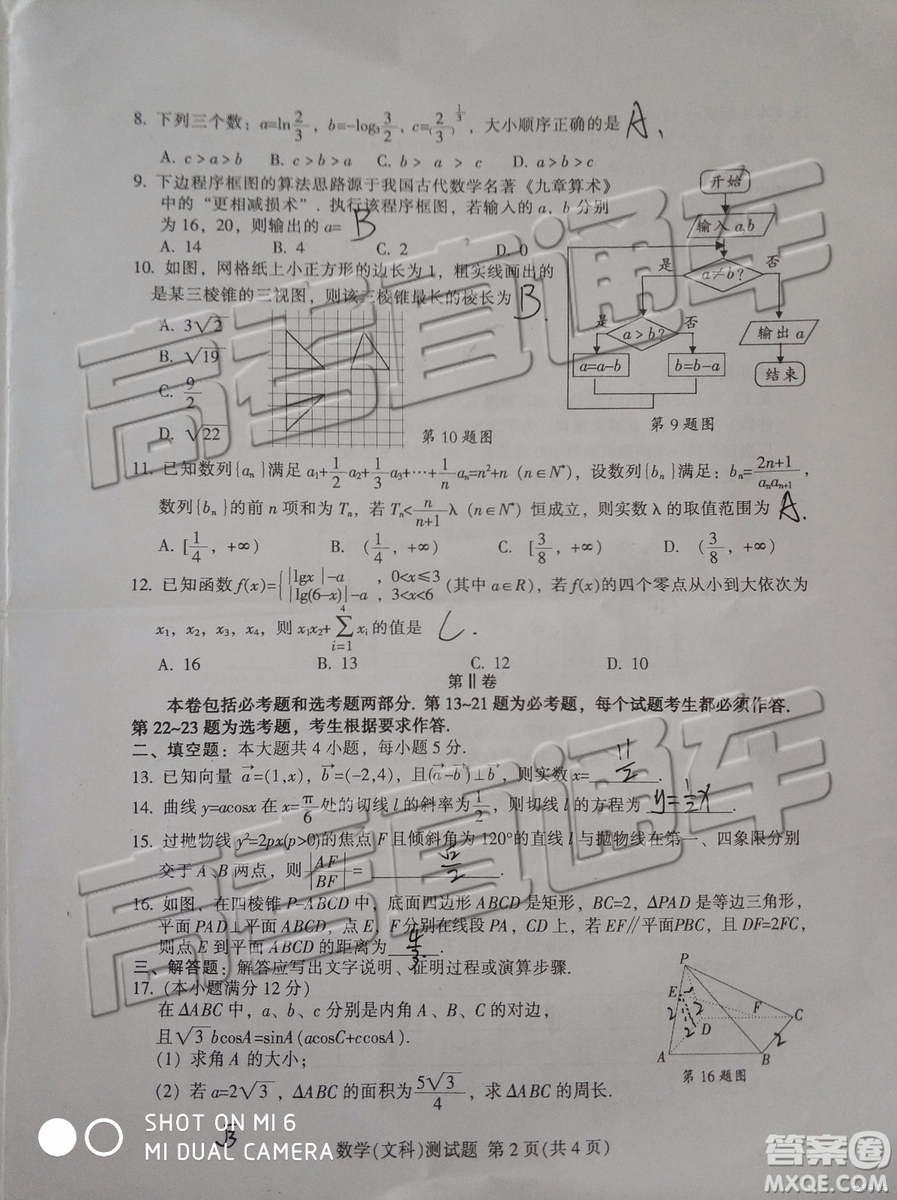 8. 下列三个数：a=ln 2/3，b=-log₃ 3/2，c=(2/3)^(1/3)，大小顺序正确的是 A.
A. c>a>b B. c>b>a C. b>a>c D. a>b>c
9. 下边程序框图的算法思路源于我国古代数学名著《九章算术》
中的“更相减损术”. 执行该程序框图，若输入的 a，b 分别
为 16，20，则输出的 a= B
A. 14 B. 4 C. 2 D. 0
开始
输入 a,b
是 a≠b? 否
是 a>b? 否
输出 a
a=a-b b=b-a
结束
第9题图
10. 如图，网格纸上小正方形的边长为 1，粗实线画出的
是某三棱锥的三视图，则该三棱锥最长的棱长为 B.
A. 3√2
B. √19
C. 9/2
D. √22
第10题图
11. 已知数列{aₙ}满足 a₁+1/2 a₂+1/3 a₃+…+1/n aₙ=n²+n (n∈N*)，设数列{bₙ}满足：bₙ=(2n+1)/(aₙaₙ₊₁)，
数列{bₙ}的前 n 项和为 Tₙ，若 Tₙ<n/(n+1) λ (n∈N*) 恒成立，则实数 λ 的取值范围为 A.
A. [1/4，+∞) B. (1/4，+∞) C. [3/8，+∞) D. (3/8，+∞)
12. 已知函数 f(x)={|lgx|-a ，0<x≤3
|lg(6-x)|-a ，3<x<6 (其中 a∈R)，若 f(x)的四个零点从小到大依次为
x₁，x₂，x₃，x₄，则 x₁x₂+∑(i=1→4)xᵢ 的值是 C.
A. 16 B. 13 C. 12 D. 10
第Ⅱ卷
本卷包括必考题和选考题两部分. 第 13~21 题为必考题，每个试题考生都必须作答.
第 22~23 题为选考题，考生根据要求作答.
二、填空题：本大题共 4 小题，每小题 5 分.
13. 已知向量 a⃗=(1,x)，b⃗=(-2,4)，且(a⃗-b⃗)⊥b⃗，则实数 x= 11/2 .
14. 曲线 y=acosx 在 x=π/6 处的切线 l 的斜率为 1/2，则切线 l 的方程为 y=1/2x .
15. 过抛物线 y²=2px(p>0)的焦点 F 且倾斜角为 120°的直线 l 与抛物线在第一、四象限分别
交于 A、B 两点，则 |AF|/|BF| = .
16. 如图，在四棱锥 P=ABCD 中，底面四边形 ABCD 是矩形，BC=2，ΔPAD 是等边三角形，
平面 PAD⊥平面 ABCD，点 E、F 分别在线段 PA，CD 上，若 EF∥平面PBC，且 DF=2FC，
则点 E 到平面 ABCD 的距离为 .
P
E F C
2 D
2 2
A B
第16题图
三、解答题：解答应写出文字说明、证明过程或演算步骤.
17. (本小题满分 12 分)
在 ΔABC 中，a、b、c 分别是内角 A、B、C 的对边，
且√3 bcosA=sinA(acosC+ccosA).
(1) 求角 A 的大小；
(2) 若 a=2√3，ΔABC 的面积为 5√3/4，求 ΔABC 的周长.
SHOT ON MI 6
MI DUAL CAMERA
数学(文科)测试题 第 2 页(共 4 页)
高考直通车
高考直通车
答案圈
MXQE.COM